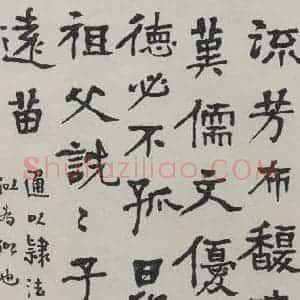 流芳布馥
冀儒文優
德必不孤
祖父說〻子
遠苗
通以隸法
似為似也
Shufaziliao.COM